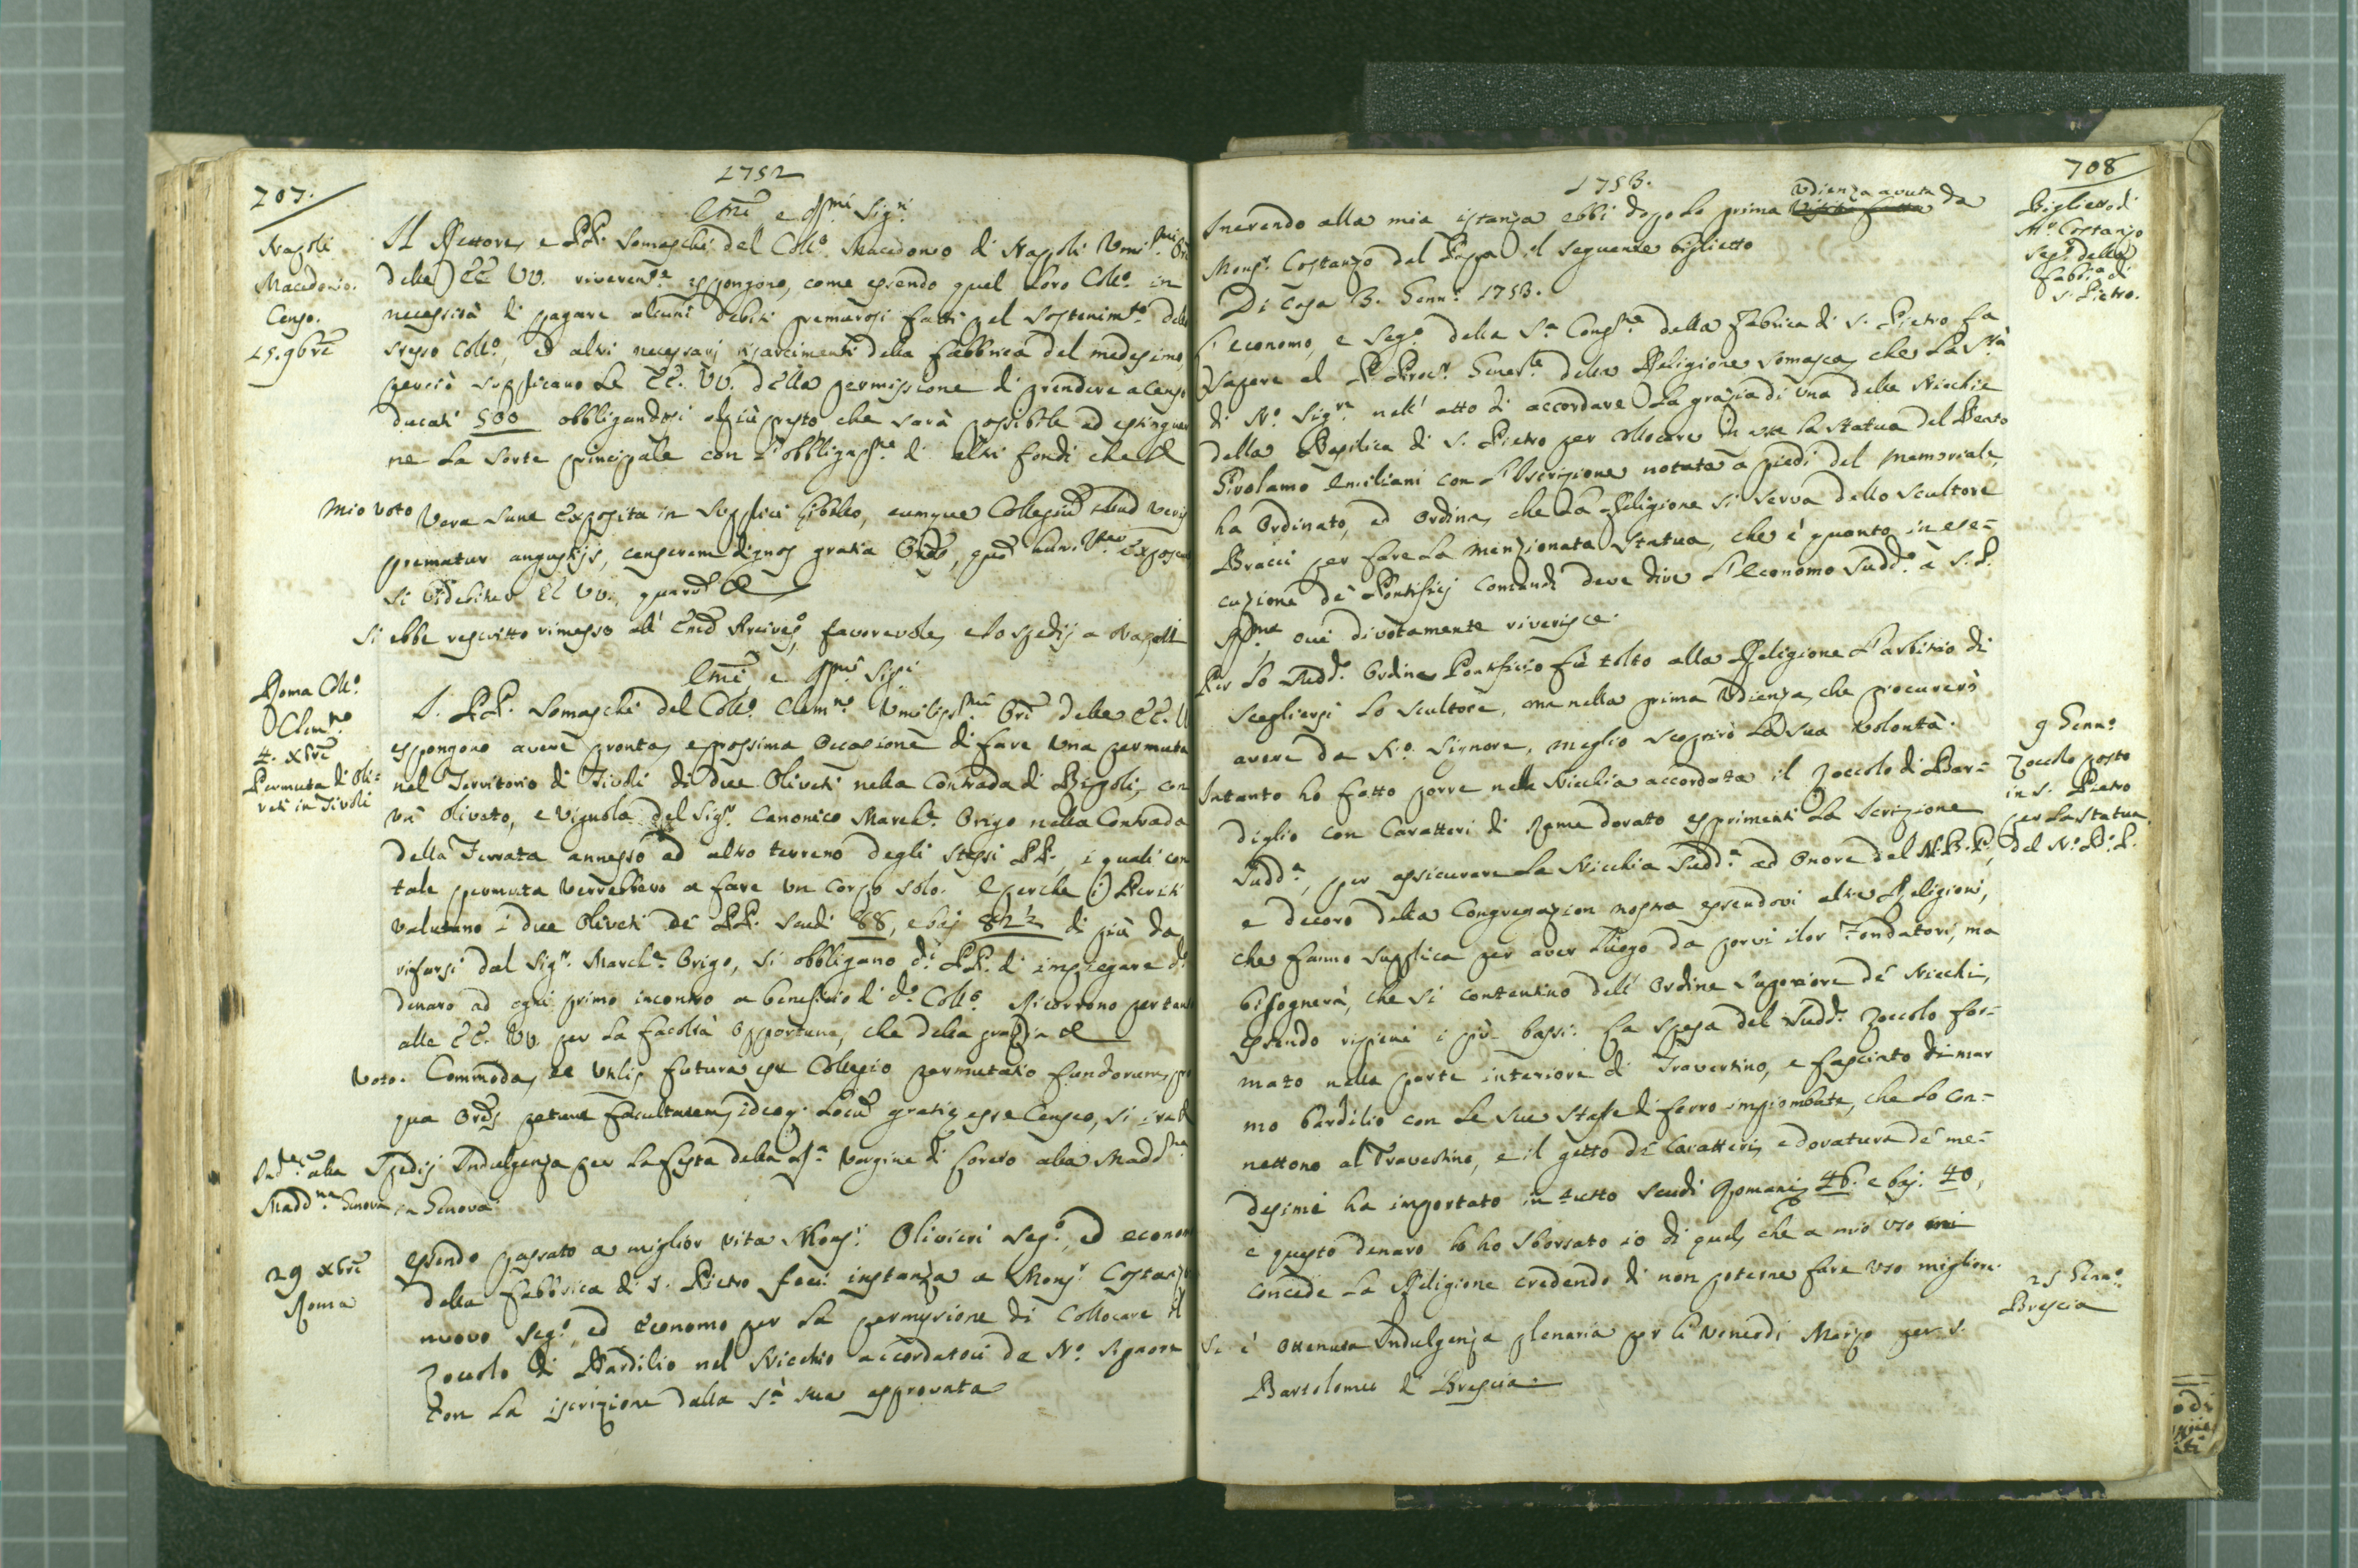 707.
1752
Napoli
Macedonio.
Censo.
15. 9bre
Emi e Rmi Sigri
Il Rettore, e PP. Somaschi del Collo Macedonio di Napoli Umi
delle EE. VV. riverente espongono, come essendo quel loro Collo in
necessità di pagare alcuni debiti premurosi fatti pel sostenimto dello
stesso Collo, ed altri necessarj risarcimenti della fabbrica del medesimo,
perciò supplicano le EE. VV. della permissione di prendere a censo
ducati 500 obbligandosi al più presto che sarà possibile ad estinguer
ne la sorte principale con l'obbligazne di altri fondi che &
Mio voto Vera sunt exposita in supplici libello, cumque Collegiũ illud veris
prematur angustijs, censerem dignos gratia Ores, quã humilter exposcunt
si videbitur EE VV. quarũ &
Si ebbe rescritto rimesso all' Emo Arcivesco, favorevole, e lo spedij a Napoli
Emi e Rmi Sigri
Roma Collo
Clemno
4. Xbre
Permuta di Oli=
veti in Tivoli
I. PP. Somaschi del Collo Clemno Umilissmi Ori delle EE. VV
espongono avere pronta, e prossima occasione di fare una permuta
nel Territorio di Tivoli di due Oliveti nella Contrada di Bigoli, con
un olivato, e vignola del Sigr Canonico Marche Origo nella Contrada
della Ferrata annesso ad altro terreno degli stessi PP., i quali con
tale permuta verrebbero a fare un corpo solo. E perche i Periti
valutano i due Oliveti de' PP. scudi 88, e baj 82½ di più da
rifarsi dal Sigr Marche Origo, si obbligano di PP. di impiegare do
denaro ad ogni primo incontro a beneficio di do Collo Ricorrono pertanto
alle EE. VV. per la facoltà opportuna, che della grazia &
Voto. Commoda, et utilis futura est Collegio permutatio fundorum, pro
qua Ores petunt facultatem, ideoq. locũ gratiæ esse censeo, si
Indza alla
Madna Genova
Spedij Indulgenza per la festa della Sma Vergine di Loreto alla Maddna
in Genova
29 Xbre
Roma
Essendo passato a miglior vita Monsr Olivieri Sego, ed economo
della Fabbrica di S. Pietro feci instanza a Monsr Costanzo
nuovo Sego, ed Economo per la permissione di collocare il
zoccolo di Bardilio nel Nicchio accordatoci da No Signore
con la iscrizione dalla Stà sua approvata
708
1753.
Biglietto di
Mr Costanzo
Sego della
Fabca di
S. Pietro.
Inerendo alla mia istanza ebbi dopo la prima Visita fatta Udienza avuta da
Monsr Costanzo del Papa il seguente biglietto
Di Casa 3. Gennro 1753.
L'economo, e Sego della Sa Congne della Fabrica di S. Pietro fa
sapere al P. Procr Generle della Religione Somasca, che la Stà
di No Sigre nell' atto di accordare la grazia di una delle Nicchie
della Basilica di S. Pietro per collocare in essa la statua del Beato
Girolamo Emiliani con l'Iscrizione notata a piedi del memoriale,
ha ordinato, ed ordina, che la Religione si serva dello scultore
Bracci per fare la menzionata statua, che è quanto in ese=
cuzione de' Pontificj comandi deve dire l'Economo suddo à S. P.
Rma cui divotamente riverisce.
Per lo suddo ordine Pontificio fù tolto alla Religione l'arbitrio di
scegliersi lo scultore, ma nella prima Udienza, che procurerò
avere da No Signore, meglio scoprirò la sua volontà.
9 Gennro
Zoccolo posto
in S. Pietro
per la statua
del No B. P.
Intanto ho fatto porre nella Nicchia accordata il zoccolo di Bar=
diglio con caratteri di rame dorato esprimenti la Scrizione
sudda, per assicurare la Nicchia sudda ad onore del N. B. P.,
e decoro della Congregazion nostra essendovi altre Religioni,
che fanno supplica per aver luogo da porvi i lor Fondatori, ma
bisognerà, che si contentino dell' ordine superiore de' Nicchi,
essendo ripieni i più bassi. La spesa del suddo zoccolo for=
mato nella parte interiore di Travertino, e fasciato di mar
mo bardilio con le sue staffe di ferro impiombate, che lo con=
nettono al Travertino, e il getto de' Caratteri, e doratura de' me=
desimi ha importato in tutto scudi Romani 46. e baj. 40,
e questo denaro lo ho sborsato io di quel, che a mio uso mi
concede la Religione credendo di non poterne fare uso migliore.
25 Gennro
Brescia
Si è ottenuta Indulgenza plenaria per li Venerdi Marzo per S.
Bartolomeo di Brescia.